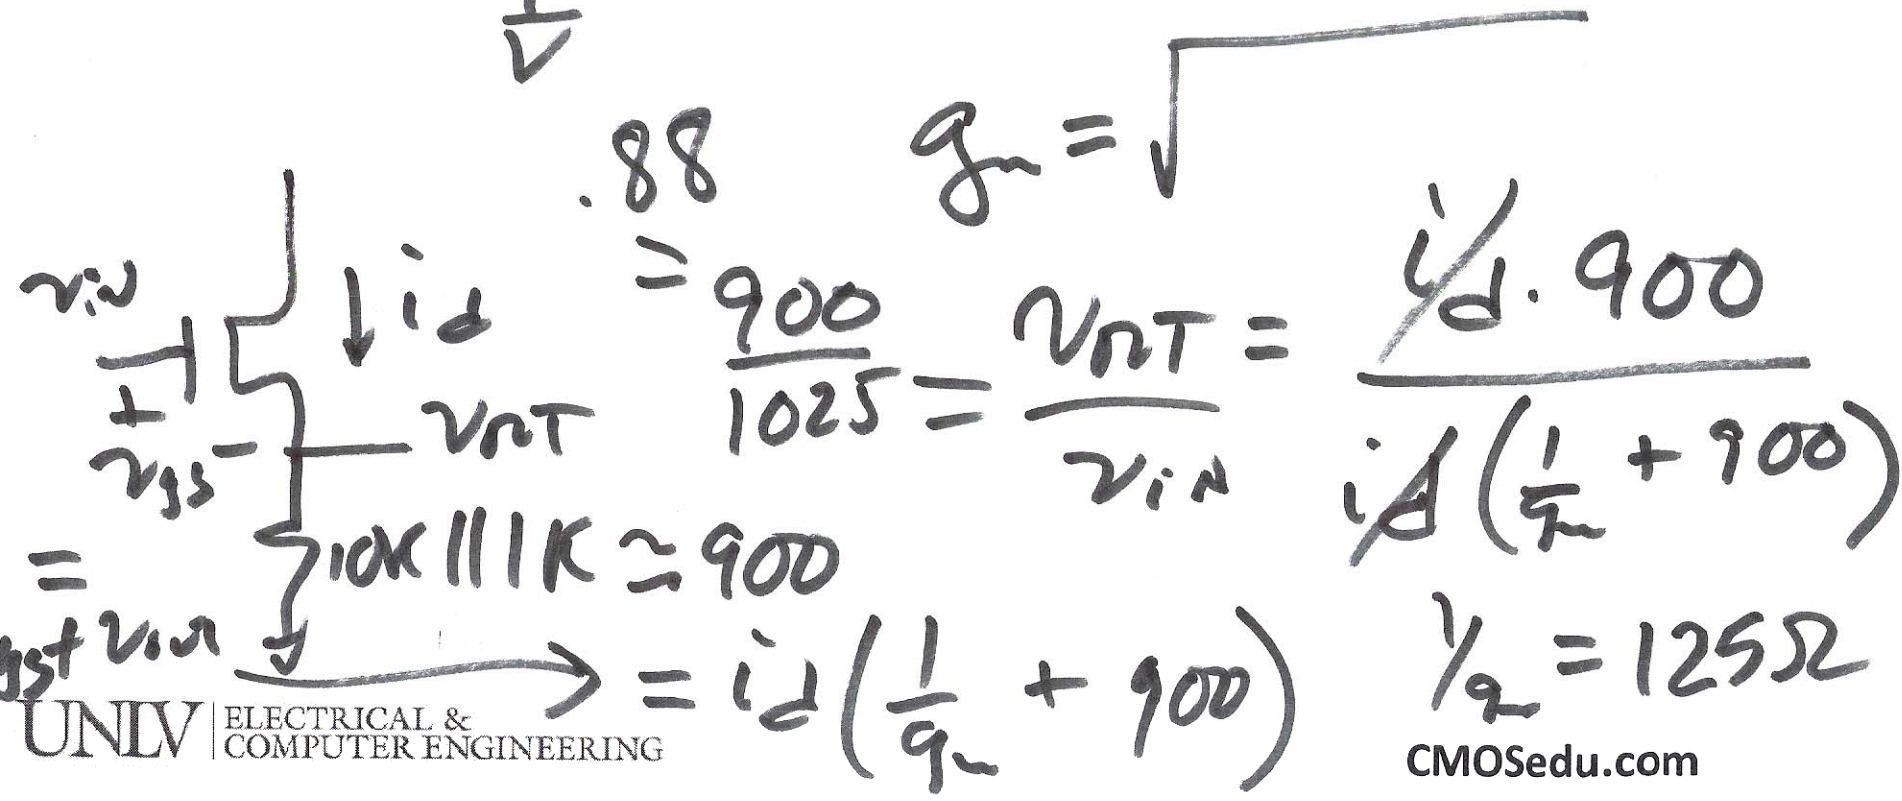 1/V
.88
gm = √
vin
id
= 900/1025 = vout/vin = id · 900 / id (1/gm + 900)
+
vgs -
vout
10K || 1K ≃ 900
=
gs + vout
= id (1/gm + 900)
1/gm = 125Ω
UNLV | ELECTRICAL &
COMPUTER ENGINEERING
CMOSedu.com